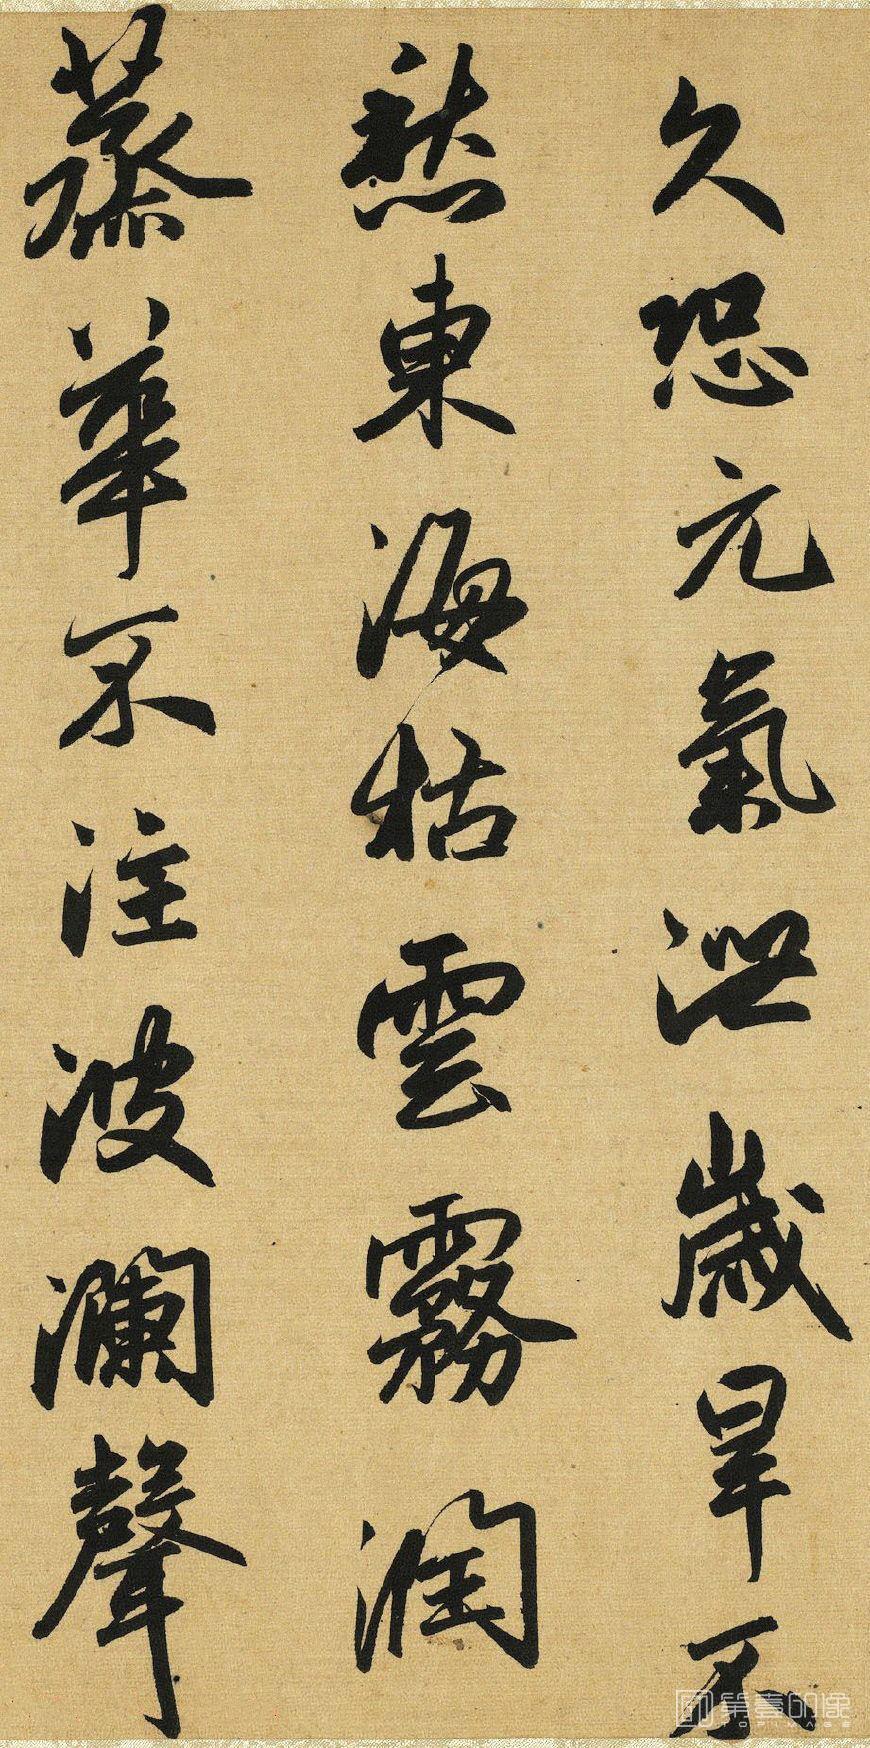 久恐元氣泄歲旱不
愁東海枯雲霧潤
蒸華不注波瀾聲
第壹印像
TOPIMAGE